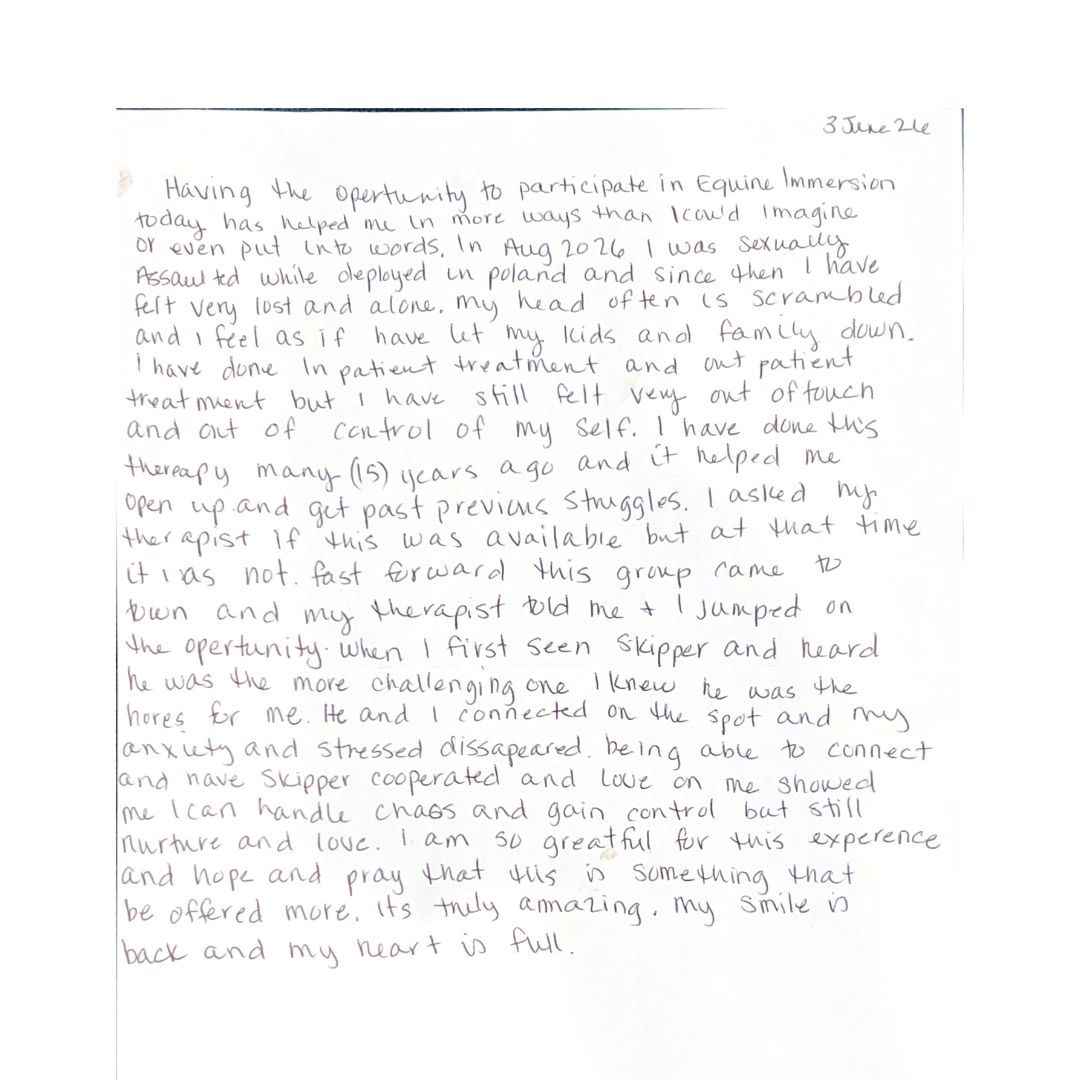 3 June 26
Having the opertunity to participate in Equine Immersion
today has helped me in more ways than I could Imagine
or even put into words. In Aug 2026 I was sexually
Assaulted while deployed in poland and since then I have
felt very lost and alone. my head often is scrambled
and I feel as if have let my kids and family down.
I have done In patient treatment and out patient
treatment but I have still felt very out of touch
and out of control of my self. I have done this
thereapy many (15) years ago and it helped me
open up and get past previous struggles. I asked my
therapist if this was available but at that time
it was not. fast forward this group came to
town and my therapist told me + I jumped on
the opertunity. when I first seen Skipper and heard
he was the more challenging one I knew he was the
hores for me. He and I connected on the spot and my
anxiety and stressed dissapeared. being able to connect
and have Skipper cooperated and love on me showed
me I can handle chaos and gain control but still
nurture and love. I am so greatful for this experence
and hope and pray that this is something that
be offered more. Its truly amazing. my smile is
back and my heart is full.